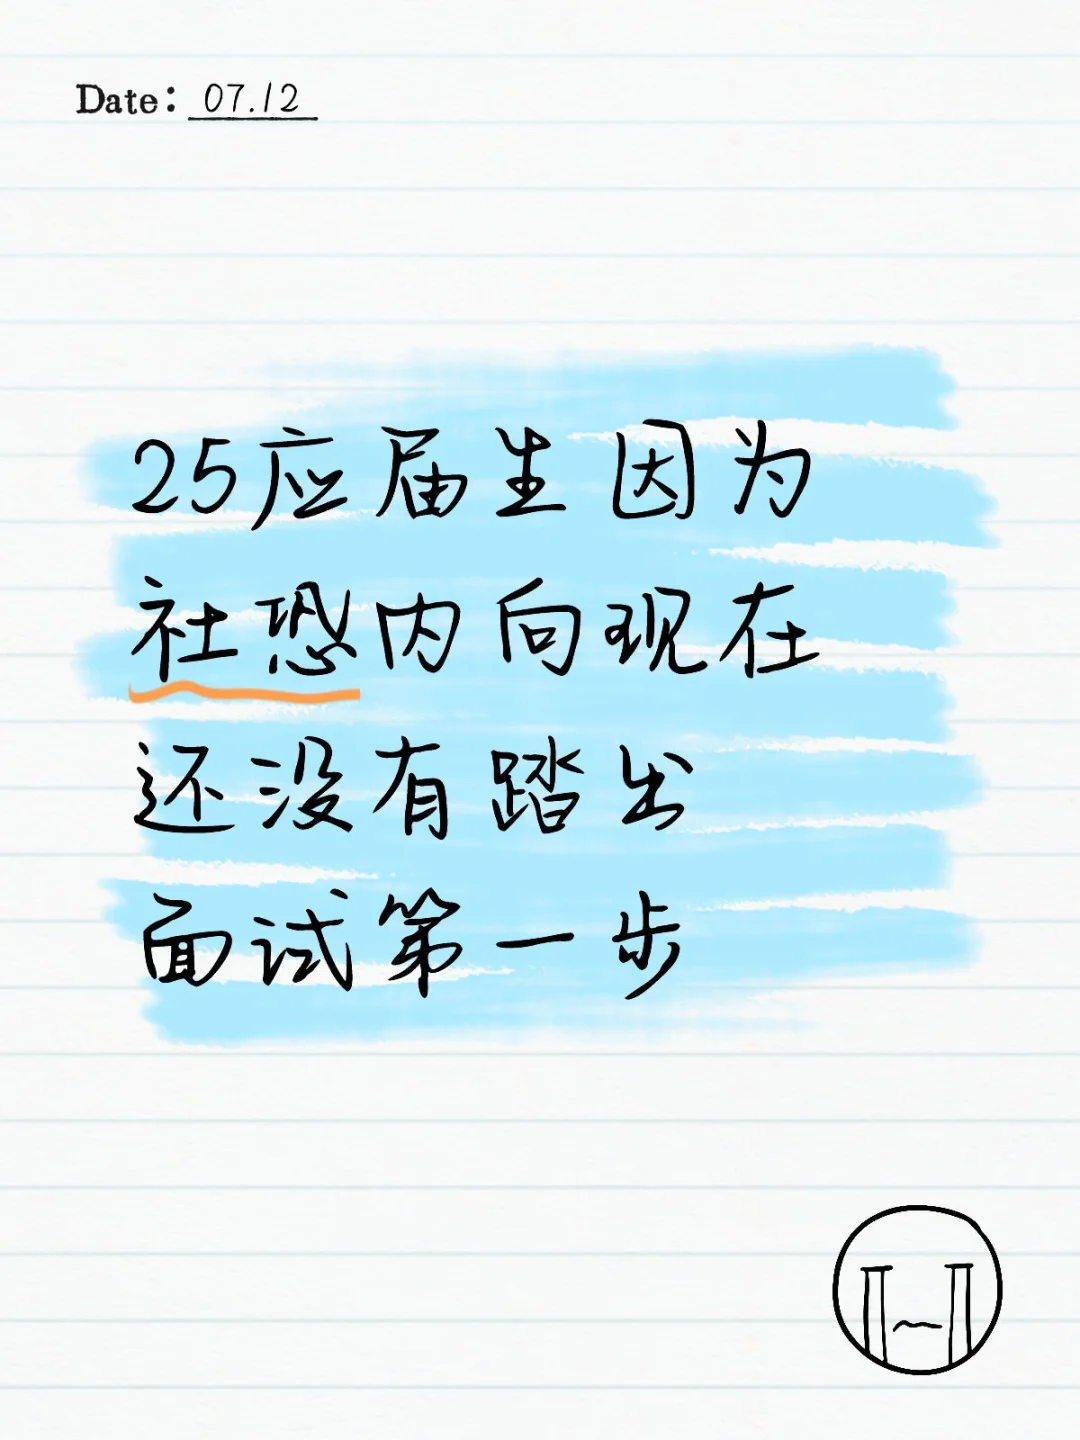 Date: 07.12
25应届生因为
社恐内向现在
还没有踏出
面试第一步